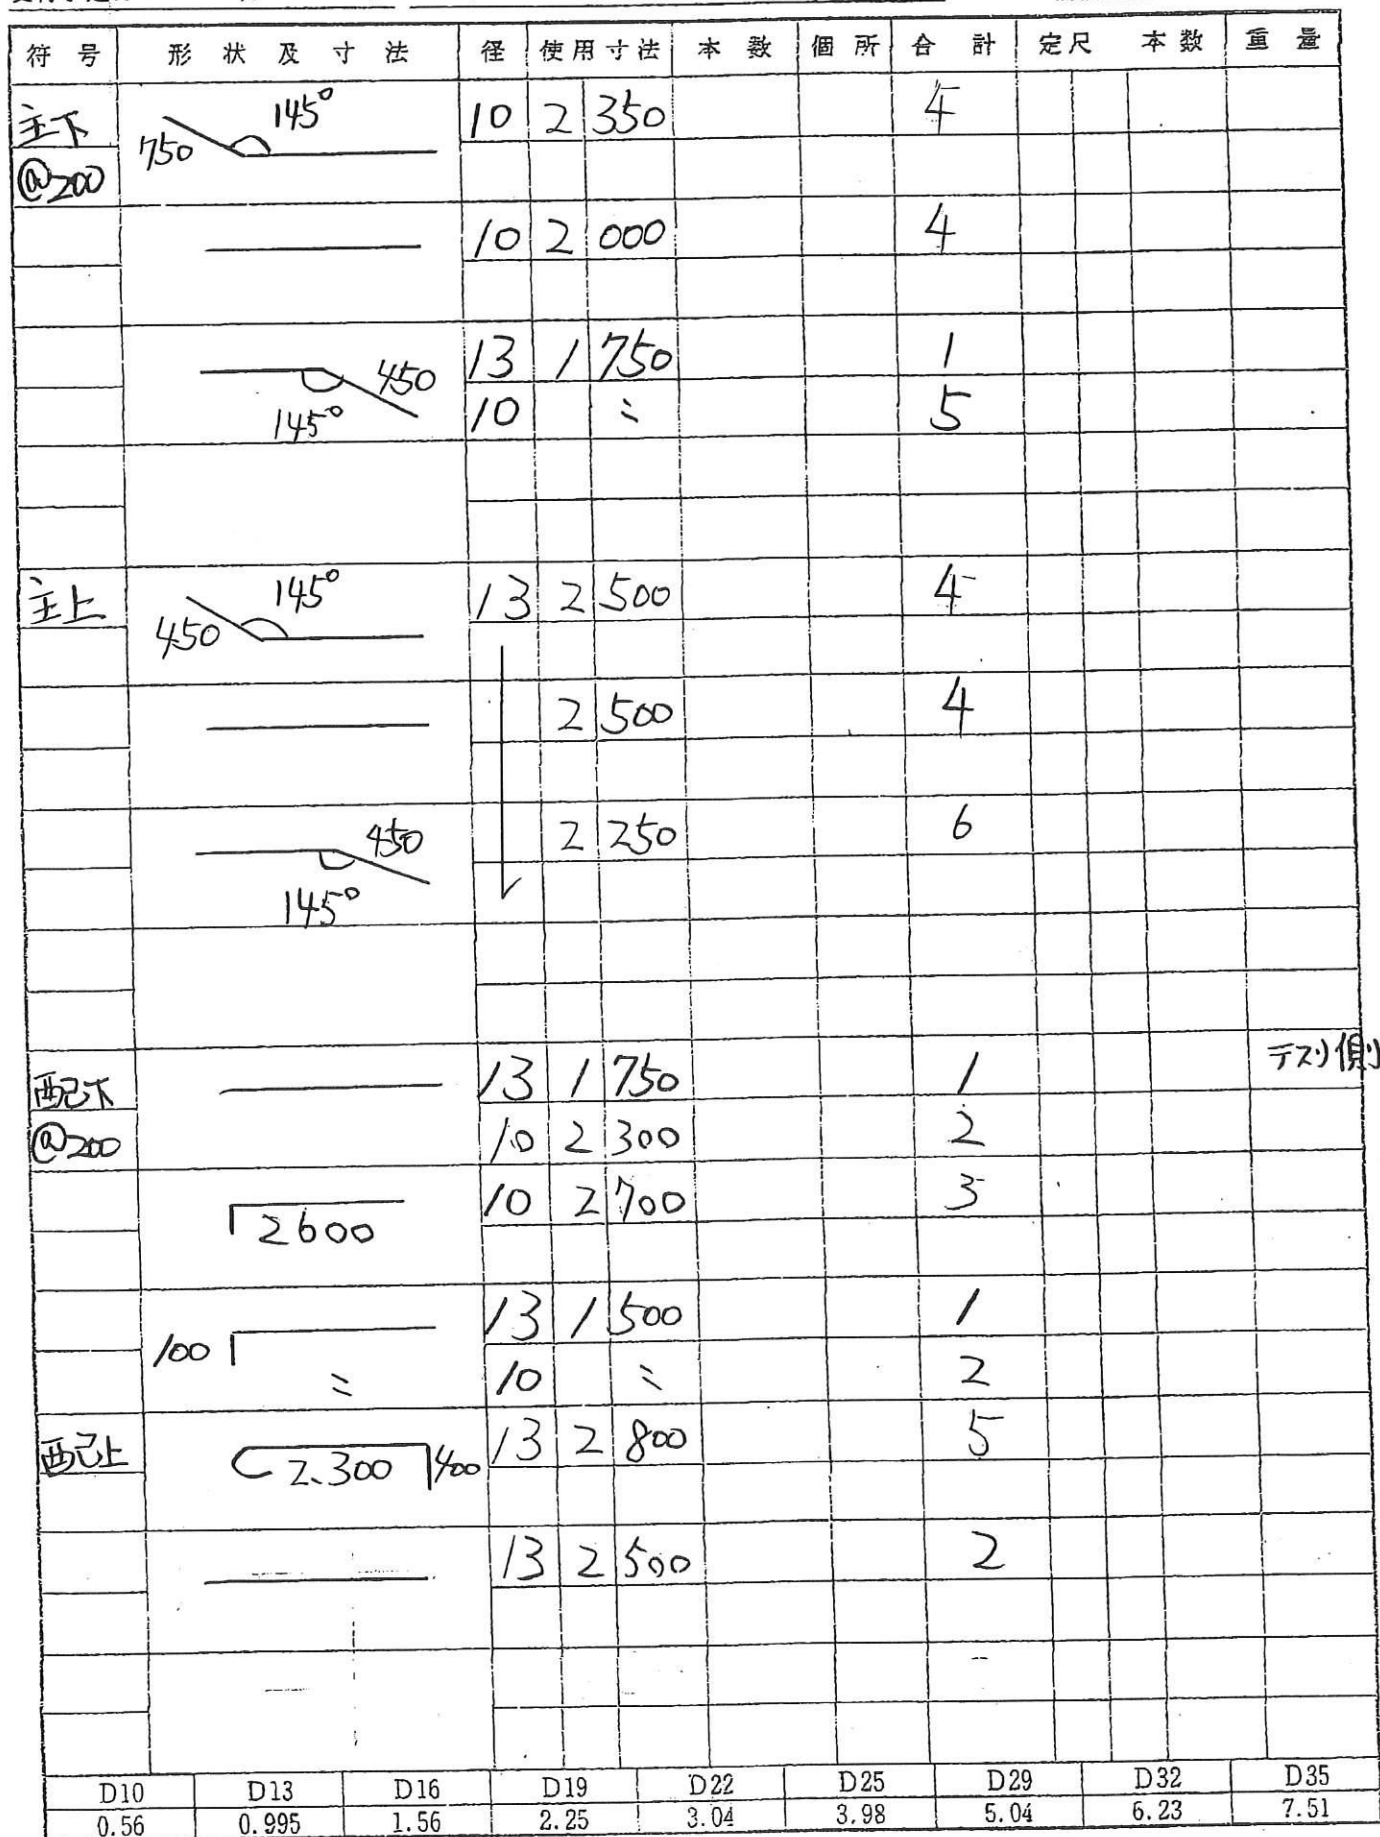 符号 形状及寸法 径 使用寸法 本数 個所 合計 定尺 本数 重量
主下 750 145° 10 2 350 4
@200
10 2 000 4
450 13 1 750 1
145° 10 〃 5
主上 450 145° 13 2 500 4
2 500 4
450 2 250 6
145°
配下 13 1 750 1 テスリ側
@200 10 2 300 2
2600 10 2 700 3
100 13 1 500 1
〃 10 〃 2
配上 2.300 400 13 2 800 5
13 2 500 2
D10 D13 D16 D19 D22 D25 D29 D32 D35
0.56 0.995 1.56 2.25 3.04 3.98 5.04 6.23 7.51